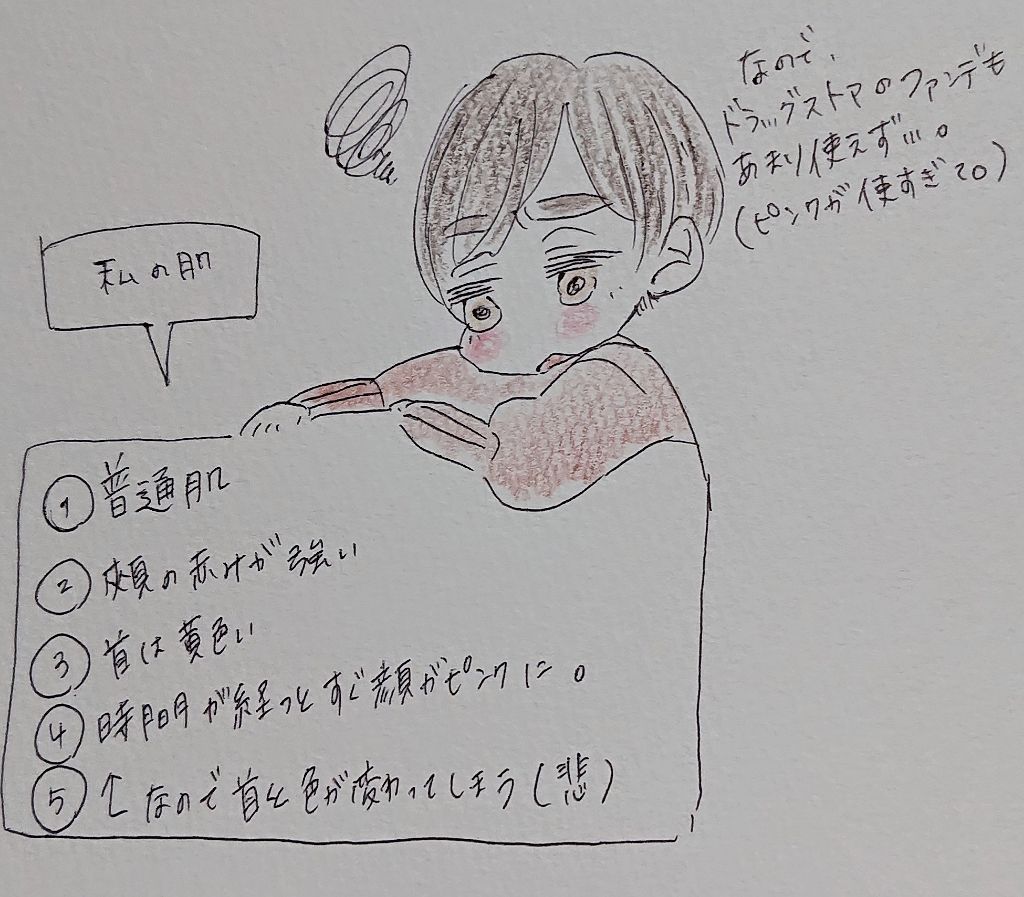 なので、
ドラッグストアのファンデも
あまり使えず…。
(ピンクが使すぎて。)
私の肌
① 普通肌
② 頬の赤けが強い
③ 首は黄色い
④ 時間が経つとすぐ顔がピンクに。
⑤ ↑なので首と色が変わってしまう(悲)